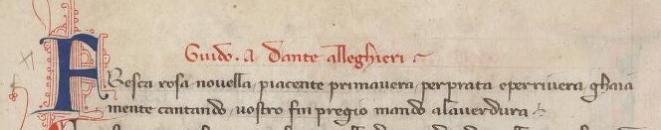 Guido. a Dante alleghieri
FResca rosa nouella piacente primauera perprata eperriuera ghaia
mente cantando uostro fin pregio mando alauerdura